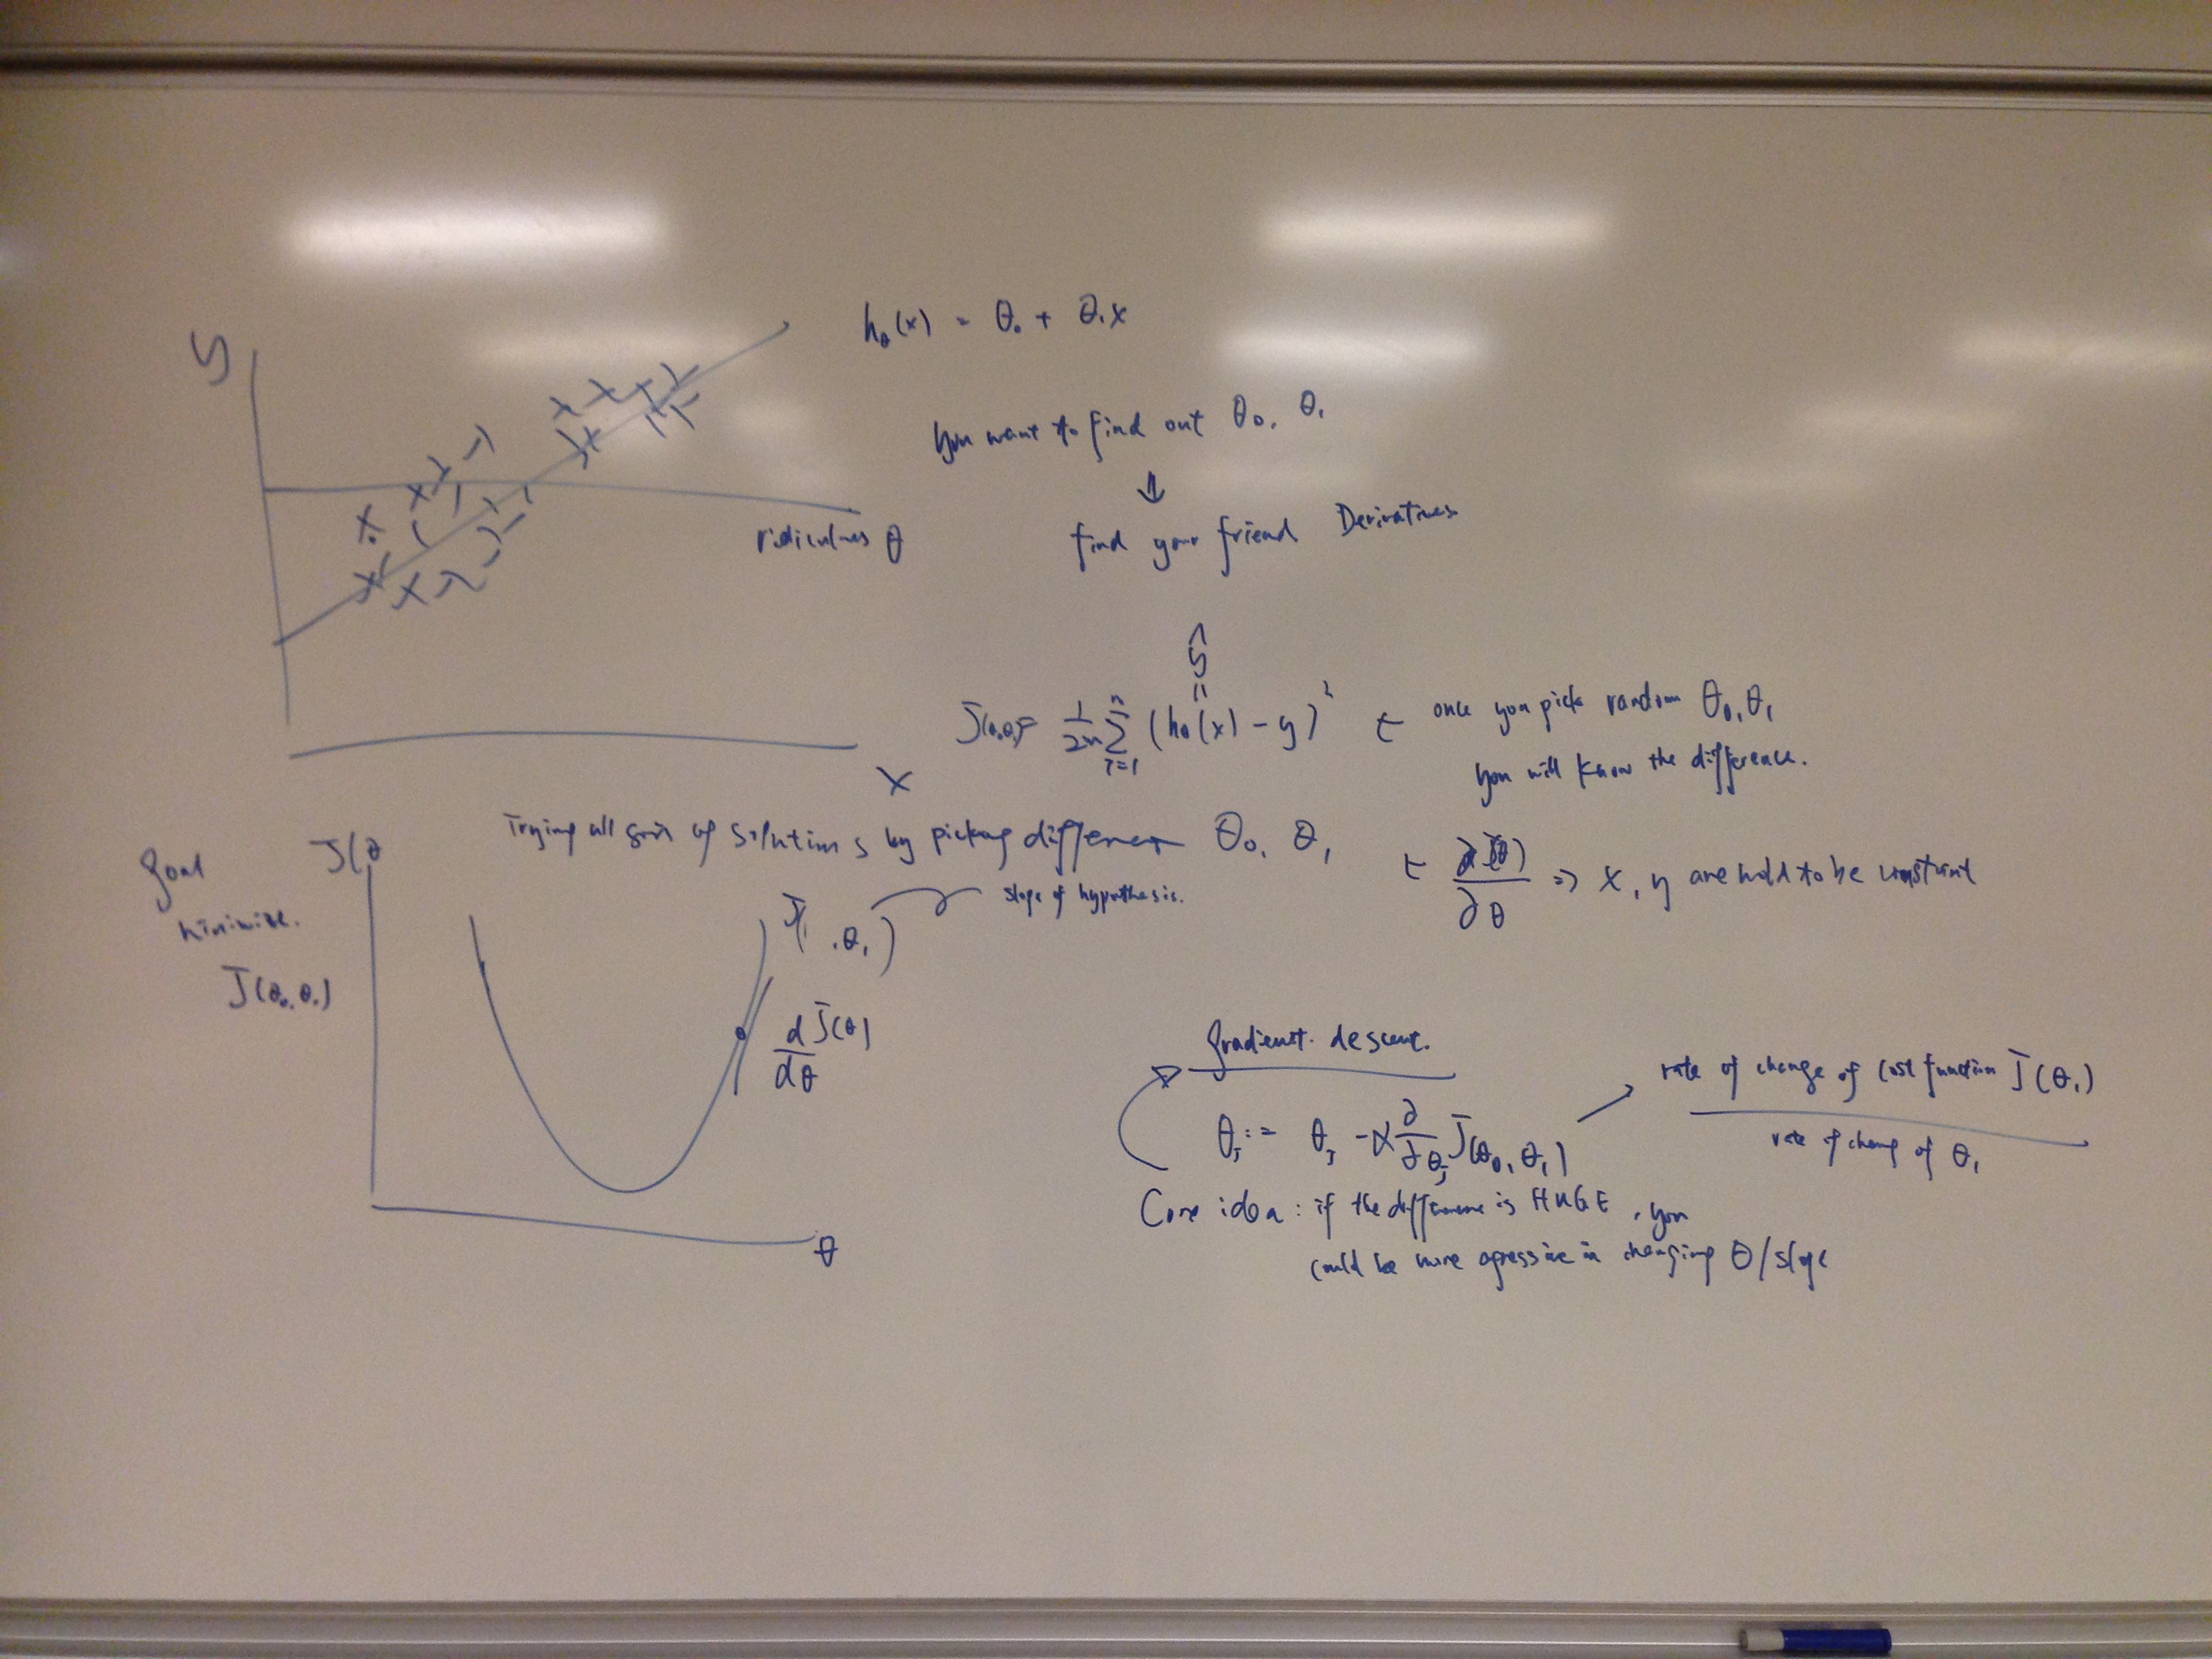 y
h_θ(x) = θ₀ + θ₁x
you want to find out θ₀, θ₁
↓
find your friend Derivatives
ridiculous θ
x
ŷ
J(θ₀,θ₁) = 1/2n Σ_{i=1}^{n} (h_θ(x) - y)² ← once you pick random θ₀, θ₁
you will know the difference.
Trying all sorts of solutions by picking different θ₀, θ₁
← ∂J(θ)/∂θ ⇒ x, y are hold to be constant
goal
minimize.
J(θ₀, θ₁)
J(θ
J( , θ₁)
slope of hypothesis.
d/dθ J(θ)
θ
gradient descent.
θ_j := θ_j - α ∂/∂θ_j J(θ₀, θ₁)
rate of change of cost function J(θ₁)
rate of change of θ₁
Core idea: if the difference is HUGE, you
could be more agressive in changing θ/slope